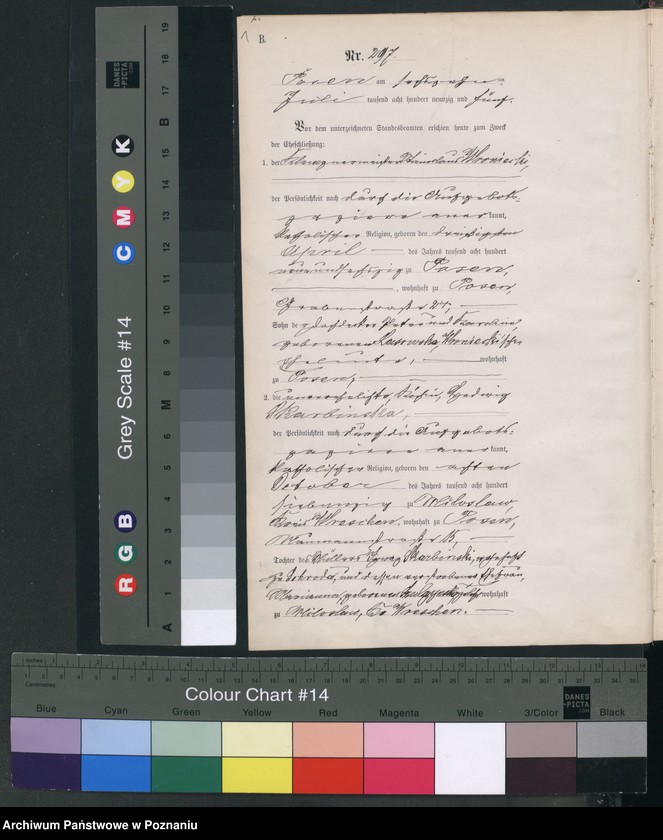 B.
Nr. 297.
Posen am sechszehnten
Juli tausend acht hundert neunzig und fünf.
Vor dem unterzeichneten Standesbeamten erschien heute zum Zweck
der Eheschließung:
1. der Stanislaus Wornieski,
der Persönlichkeit nach durch die Aufgebots-
papiere anerkannt,
katholischer Religion, geboren den dreißigsten
April des Jahres tausend acht hundert
neunundsechszig zu Posen,
, wohnhaft zu Posen,
Grabenstraße
Sohn des Dachdecker Peter und Karoline,
geborenen
Eheleute, wohnhaft
zu Posen,
2. die unverehelichte, Köchin, Hedwig
Skarbinska,
der Persönlichkeit nach durch die Aufgebots-
papiere anerkannt,
katholischer Religion, geboren den achten
October des Jahres tausend acht hundert
siebenzig zu Miloslaw,
Kreis Wreschen, wohnhaft zu Posen,
Naumannstraße
Tochter des Müllers Ignaz Skarbinski, wohnhaft
zu Schroda, und dessen verstorbenen Ehefrau,
Marianna, geborenen wohnhaft
zu Miloslaw, Kr. Wreschen.
DANES
PICTA
.COM
Grey Scale #14
R G B
C M Y K
A 1 2 3 4 5 6 M 8 9 10 11 12 13 14 15 B 17 18 19
Inches
Centimetres
Colour Chart #14
DANES
PICTA
.COM
Blue Cyan Green Yellow Red Magenta White 3/Color Black
Archiwum Państwowe w Poznaniu